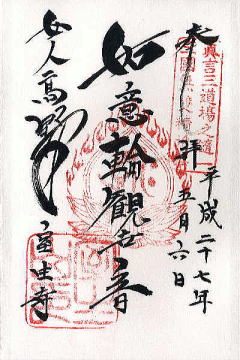 奉拝
平成二十七年
五月六日
如意輪観世音
女人高野
室生寺